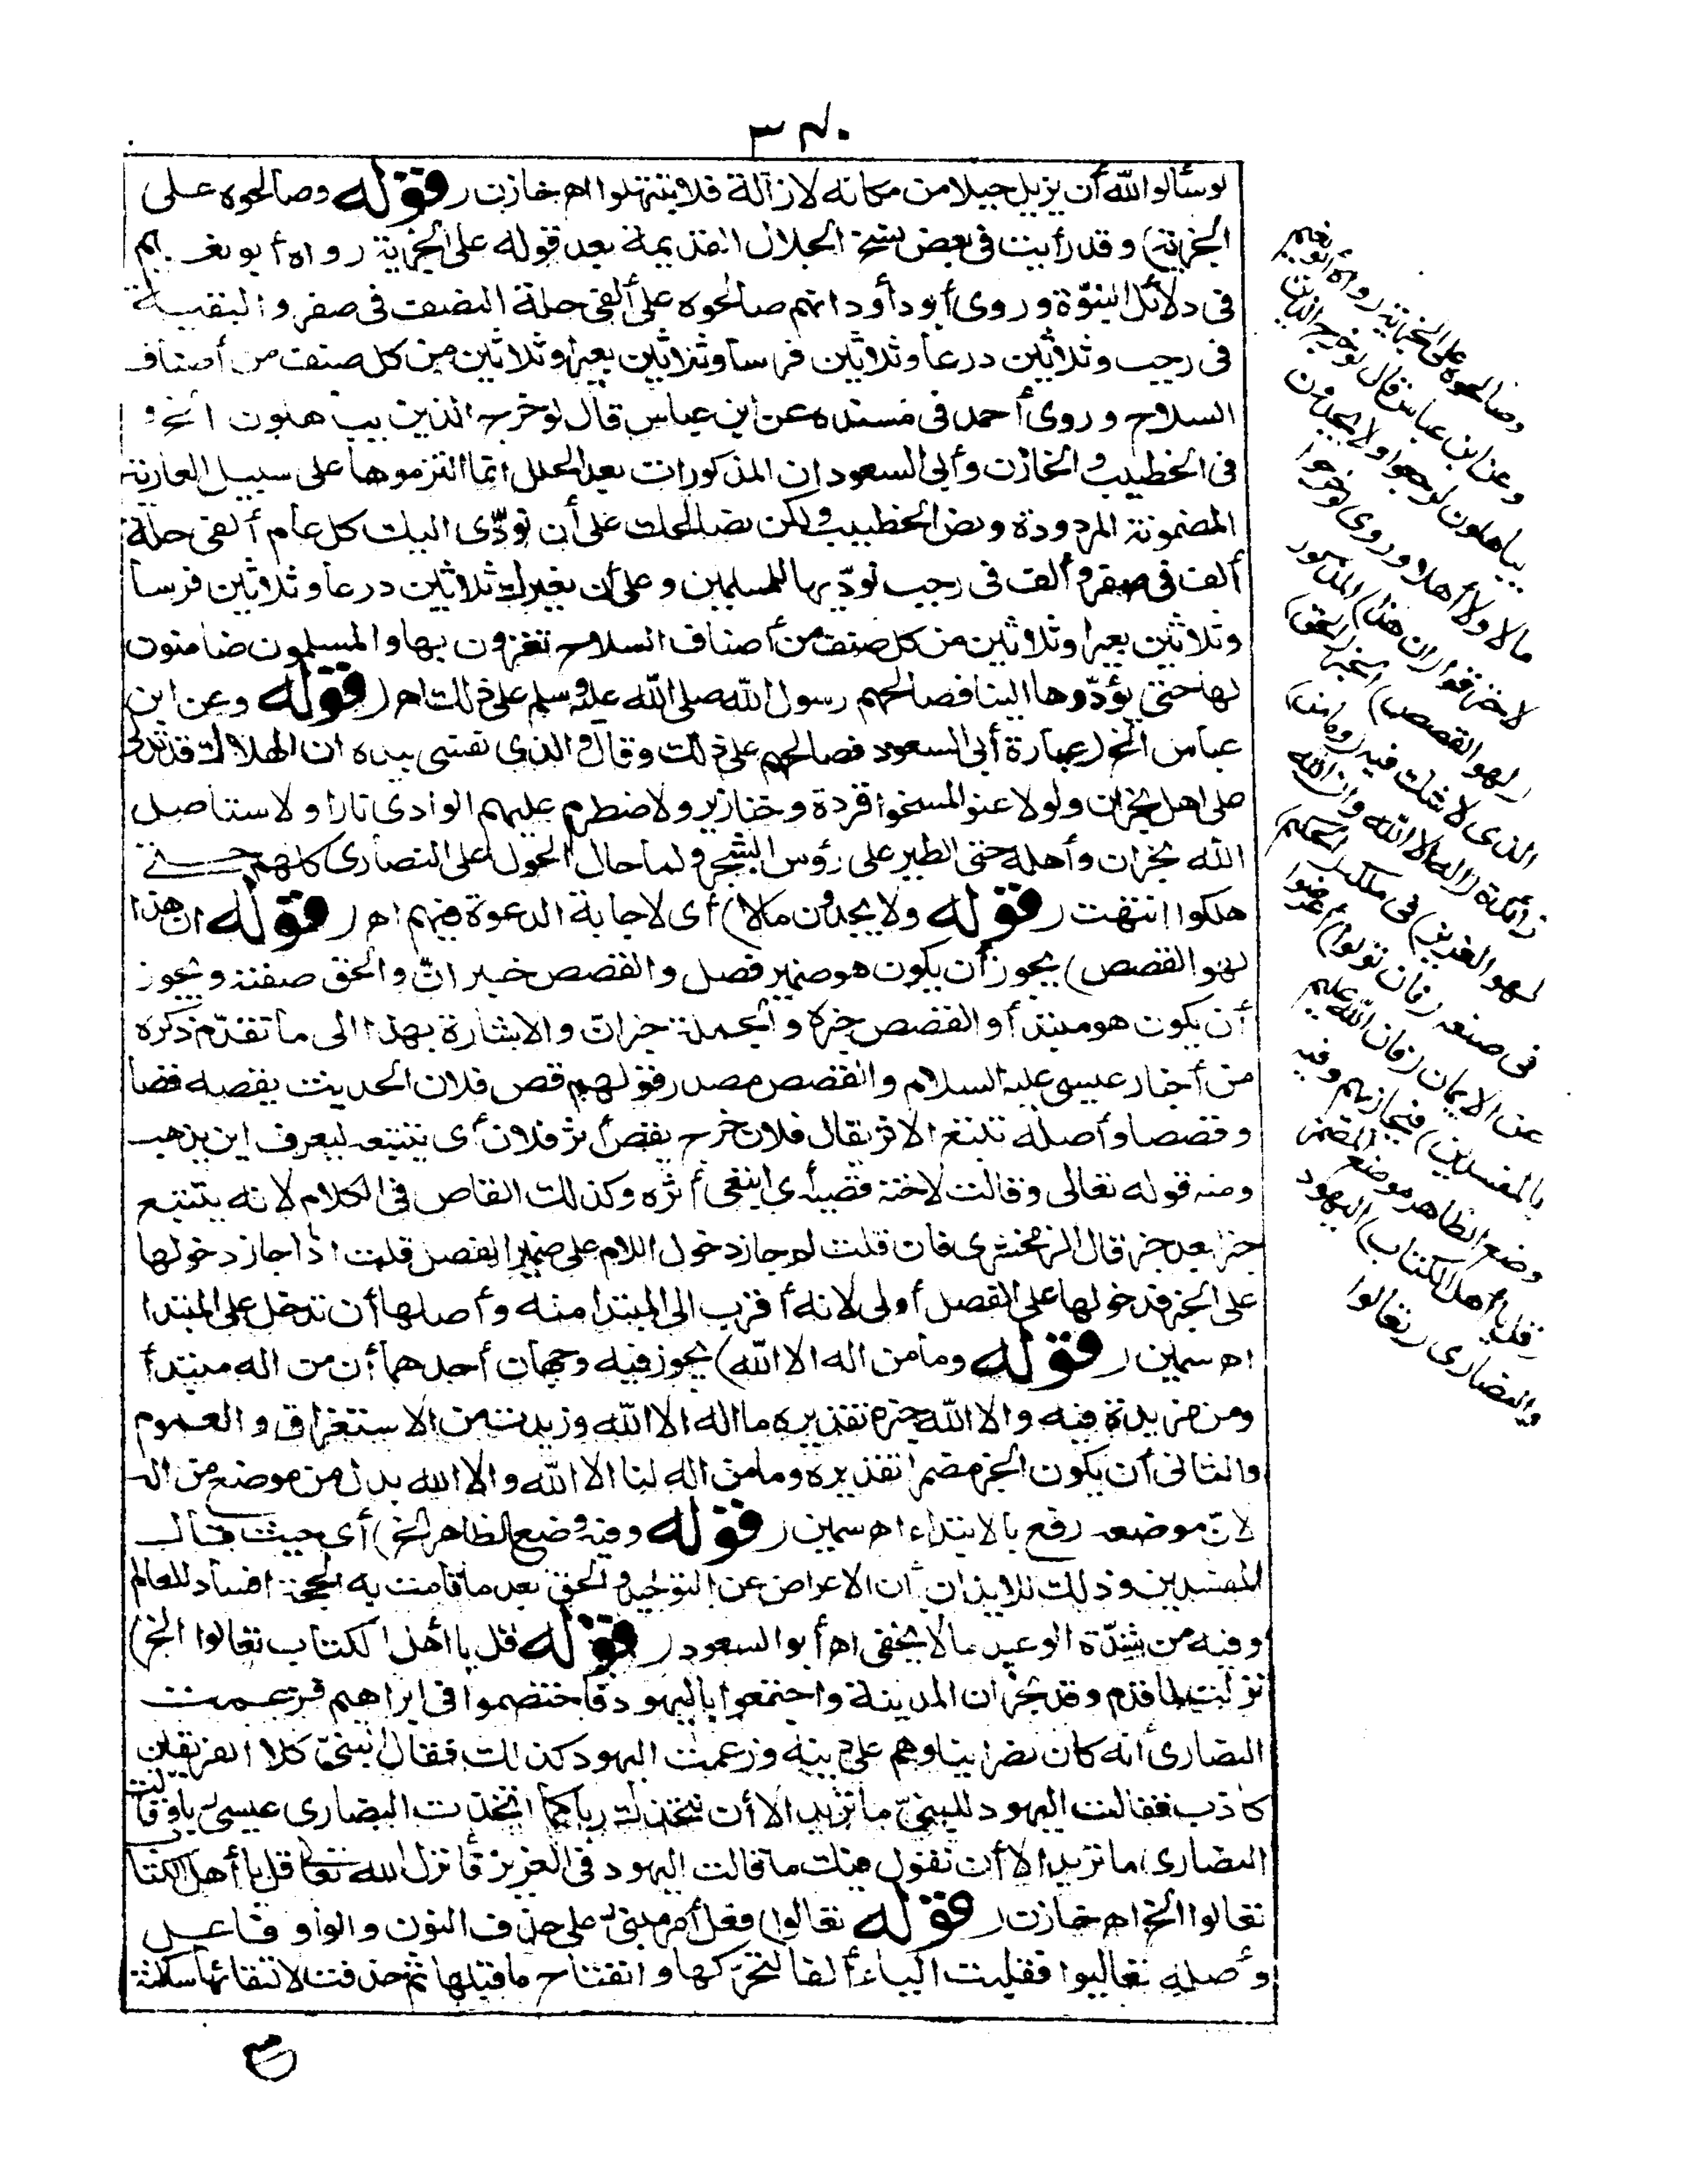 ٣٤٠
لو سألوا الله أن يزيل جبلا من مكانه لازاله فلا تبتهلوا اه خازن (قوله وصالحوه على
الجزية) وقد رأيت فى بعض نسخ الجلال القديمة بعد قوله على الجزية رواه أبو نعيم
فى دلائل النبوّة وروى أبو داود انهم صالحوه على ألفى حلة النصف فى صفر والبقية
فى رجب وثلاثين درعا وثلاثين فرسا وثلاثين بعيرا وثلاثين من كل صنف من أصناف
السلاح وروى أحمد فى مسنده عن ابن عباس قال لو خرج الذين يباهلون الخ و
فى الخطيب والخازن وأبى السعود ان المذكورات بعد الحلل انما التزموها على سبيل العارية
المضمونة المردودة ونص الخطيب ولكن نصالحك على أن نؤدّى اليك كل عام ألفى حلة
ألف فى صفر وألف فى رجب نؤدّيها للمسلمين وعلى أن نعيرك ثلاثين درعا وثلاثين فرسا
وثلاثين بعيرا وثلاثين من كل صنف من أصناف السلاح تغزون بها والمسلمون ضامنون
لها حتى يؤدّوها الينا فصالحهم رسول الله صلى الله عليه وسلم على ذلك اه (قوله وعن ابن
عباس الخ) عبارة أبى السعود فصالحهم على ذلك وقال والذى نفسى بيده ان الهلاك قد تدلى
على اهل نجران ولو لاعنوا لمسخوا قردة وخنازير ولاضطرم عليهم الوادى نارا ولاستأصل
الله نجران وأهله حتى الطير على رؤس الشجر ولما حال الحول على النصارى كلهم حتى
هلكوا انتهت (قوله ولا يجدون مالا) أى لاجابة الدعوة فيهم اه (قوله ان هذا
لهو القصص) يجوز أن يكون هو ضمير فصل والقصص خبر انّ والحق صفته ويجوز
أن يكون هو مبتدأ والقصص خبره والجملة خبر انّ والاشارة بهذا الى ما تقدّم ذكره
من أخبار عيسى عليه السلام والقصص مصدر قولهم قص فلان الحديث يقصه قصا
وقصصا وأصله تتبع الاثر يقال فلان خرج يقص أثر فلان أى يتتبعه ليعرف اين يذهب
ومنه قوله تعالى وقالت لاخته قصيه أى اتبعى أثره وكذلك القاص فى الكلام لانه يتتبع
خبرا بعد خبر قال الزمخشرى فان قلت لم جاز دخول اللام على ضمير الفصل قلت اذا جاز دخولها
على الخبر فدخولها على الفصل أولى لانه أقرب الى المبتدا منه وأصلها أن تدخل على المبتدا
اه سمين (قوله وما من اله الا الله) يجوز فيه وجهان أحدهما أن من اله مبتدأ
ومن مزيدة فيه والا الله خبره تقديره ما اله الا الله وزيدت من الاستغراق والعموم
والثانى أن يكون الخبر مضمرا تقديره وما من اله لنا الا الله والا الله بدل من موضع من اله
لانّ موضعه رفع بالابتداء اه سمين (قوله وفيه وضع الظاهر الخ) أى حيث قال
المفسدين وذلك للايذان انّ الاعراض عن التوحيد والحق بعد ما قامت به الحجة افساد للعالم
وفيه من شدّة الوعيد ما لا يخفى اه أبو السعود (قوله قل يا أهل الكتاب تعالوا الخ)
نزلت لما قدم وفد نجران المدينة واجتمعوا باليهود فاختصموا فى ابراهيم فزعمت
النصارى أنه كان نصرانيا وهم على دينه وزعمت اليهود كذلك فقال النبىّ كلا الفريقين
كاذب فقالت اليهود للنبىّ ما تريد الا أن نتخذك ربا كما اتخذت النصارى عيسى ربا وقالت
النصارى ما تريد الا أن نقول فيك ما قالت اليهود فى العزيز فأنزل الله تعالى قل يا أهل الكتا
تعالوا الخ اه خازن (قوله تعالوا) فعل أمر مبنىّ على حذف النون والواو فاعل
وأصله تعاليوا فقلبت الياء ألفا لتحرّكها وانفتاح ما قبلها ثم حذفت لالتقائها ساكنة
وصالحوه على الجزية رواه أبو نعيم
وعن ابن عباس قال لو خرج الذين
يباهلون لرجعوا ولا يجدون
مالا ولا أهلا وروى لو خرجوا
لاحترقوا (ان هذا) المذكور
(لهو القصص) الخبر (الحق)
الذى لا شك فيه (وما من)
زائدة (اله الا الله وان الله
لهو العزيز) فى ملكه (الحكيم)
فى صنعه (فان تولوا) أعرضوا
عن الايمان (فان الله عليم
بالمفسدين) فيجازيهم وفيه
وضع الظاهر موضع المضمر
(قل يا أهل الكتاب) اليهود
والنصارى (تعالوا